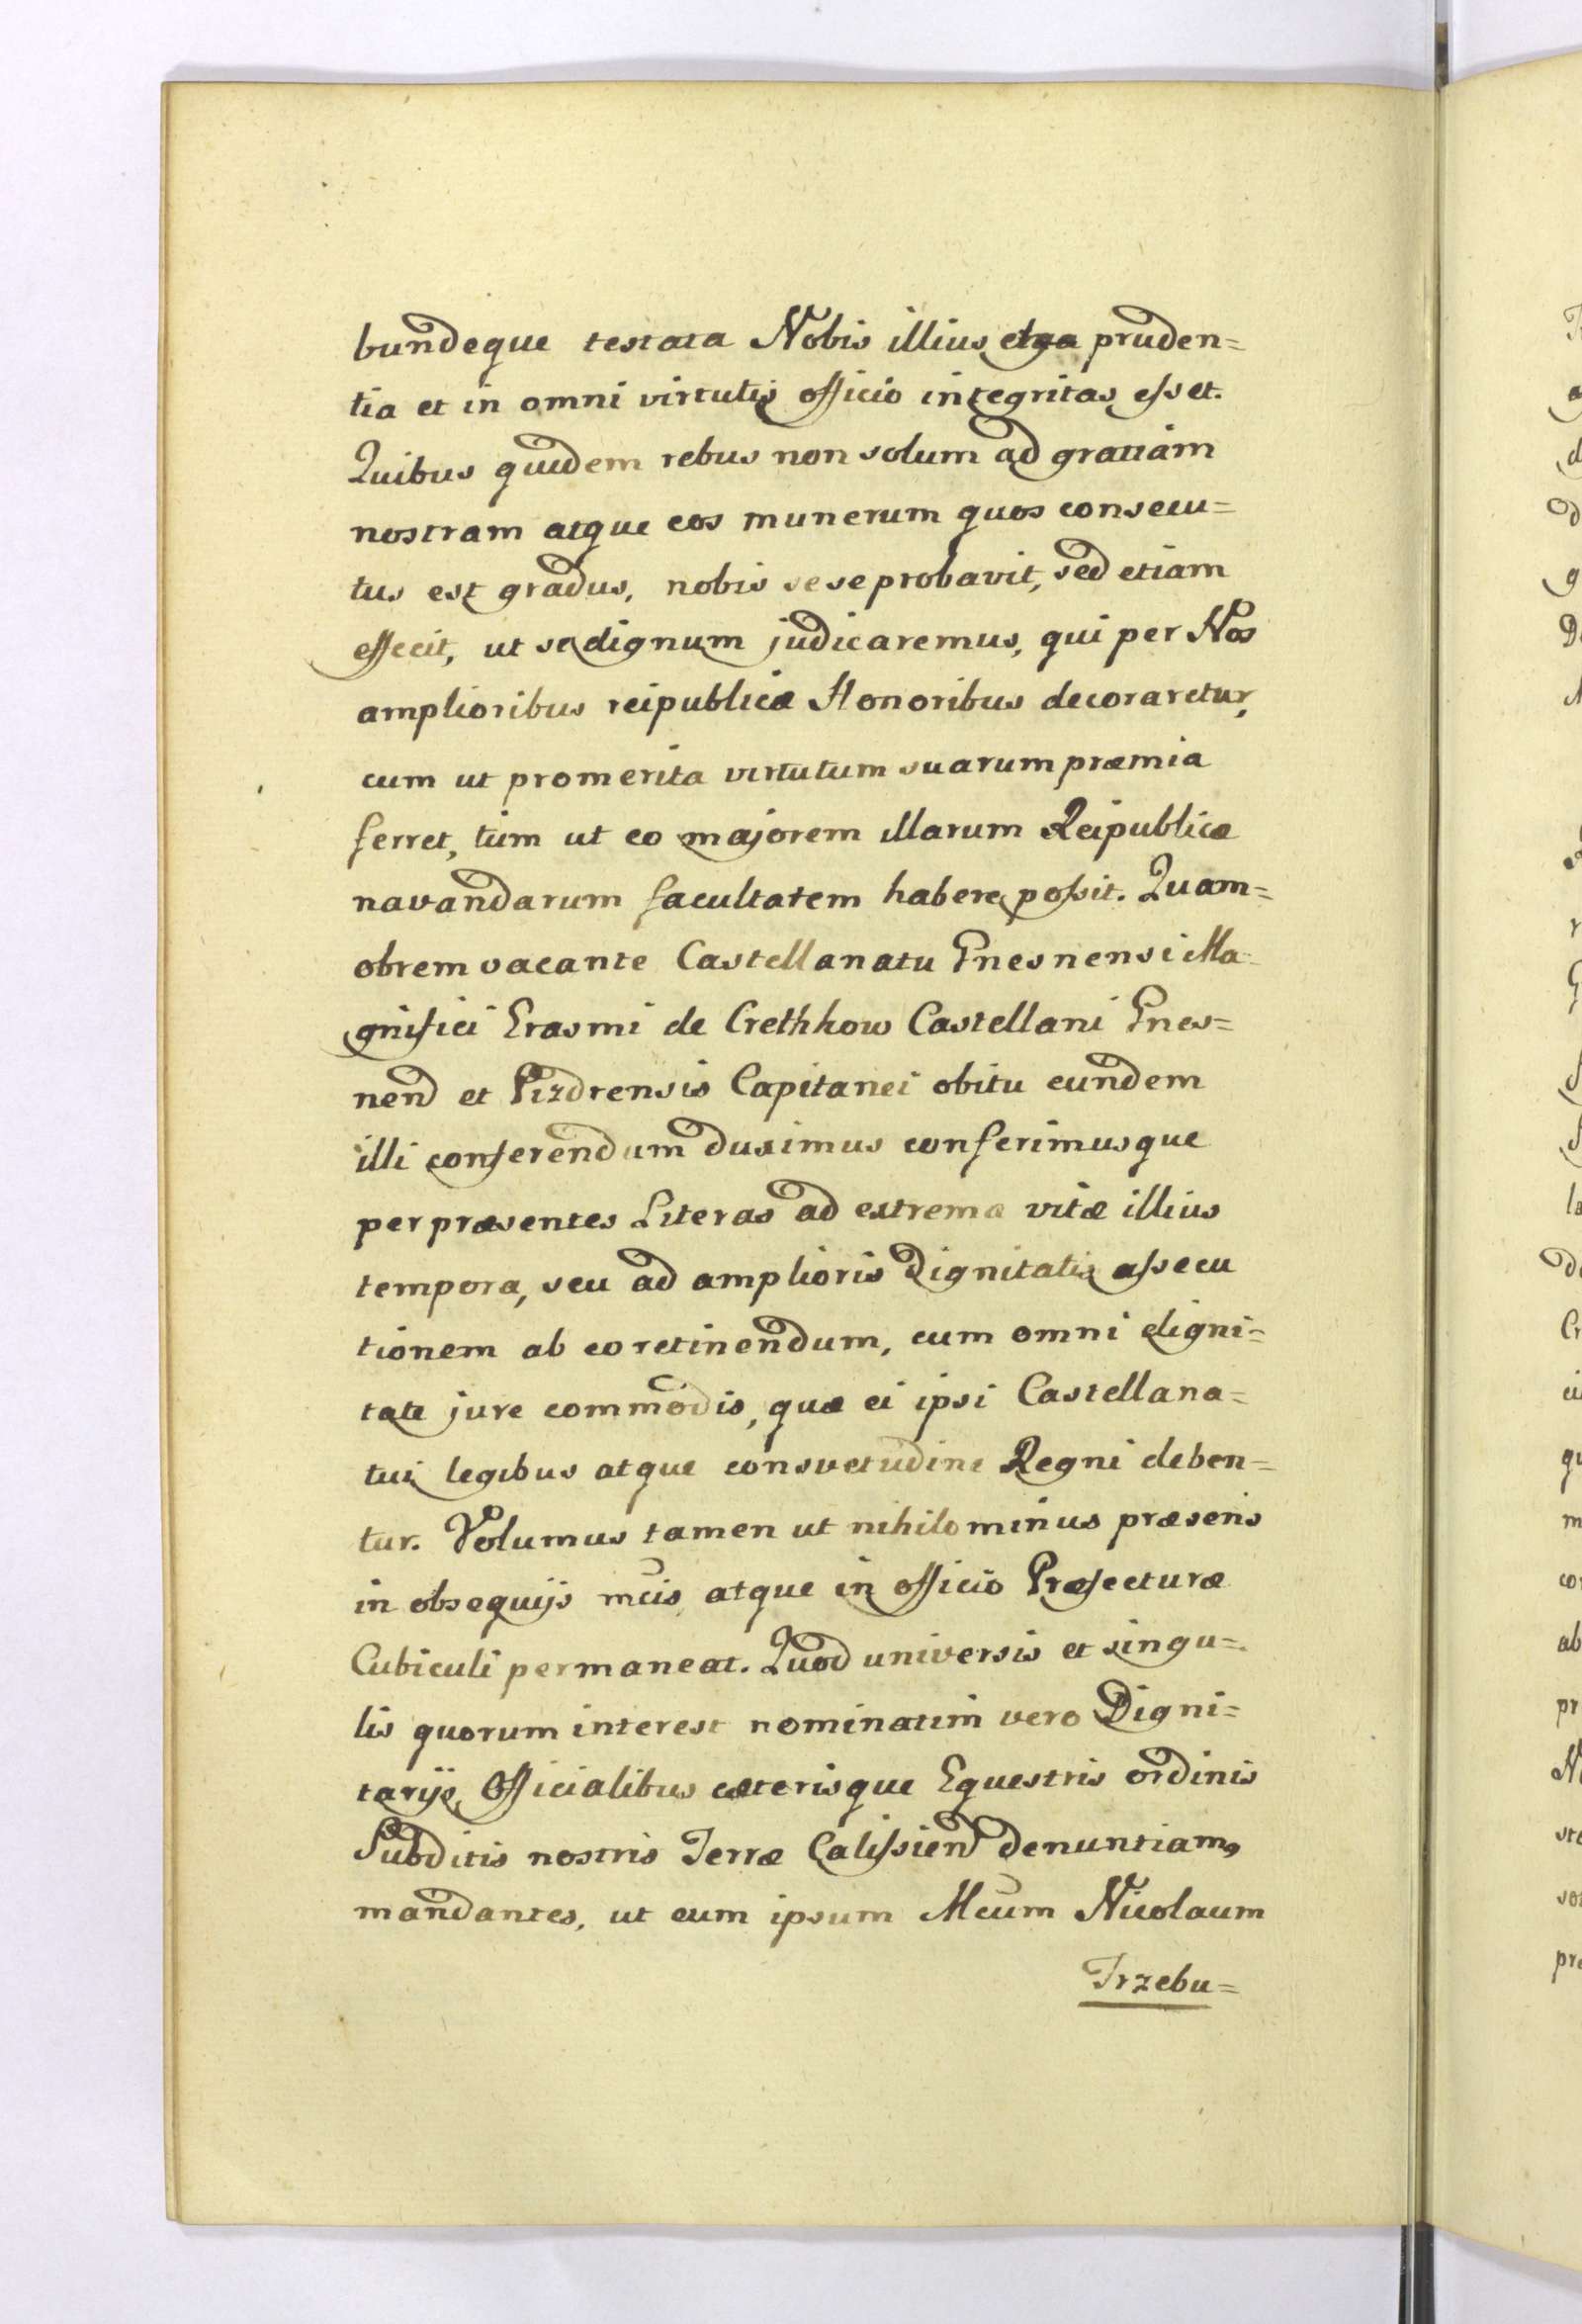 bundeque testata Nobis illius pruden=
tia et in omni virtutis officio integritas esset.
Quibus quidem rebus non solum ad gratiam
nostram atque eos munerum quos consecu=
tus est gradus, nobis sese probavit, sed etiam
effecit, ut se dignum judicaremus, qui per Nos
amplioribus reipublicæ Honoribus decoraretur,
cum ut promerita virtutum suarum præmia
ferret, tum ut eo majorem illarum Reipublicæ
navandarum facultatem habere possit. Quam=
obrem vacante Castellanatu Gnesnensi Ma=
gnifici Erasmi de Crethkow Castellani Gnes=
nend et Pizdrensis Capitanei obitu eundem
illi conferendum duximus conferimusque
per præsentes Literas ad extrema vitæ illius
tempora, seu ad amplioris Dignitatis assecu
tionem ab eo retinendum, cum omni digni=
tate jure commodis, quæ ei ipsi Castellana=
tui legibus atque consvetudine Regni deben=
tur. Volumus tamen ut nihilominus præsens
in obsequijs ncis atque in officio Præfecturæ
Cubiculi permaneat. Quod universis et singu=
lis quorum interest nominatim vero Digni=
tarijs, Officialibus cæterisque Equestris ordinis
Subditis nostris Terræ Calissiend denuntiam9
mandantes, ut eum ipsum Mcum Nicolaum
Trzebu=